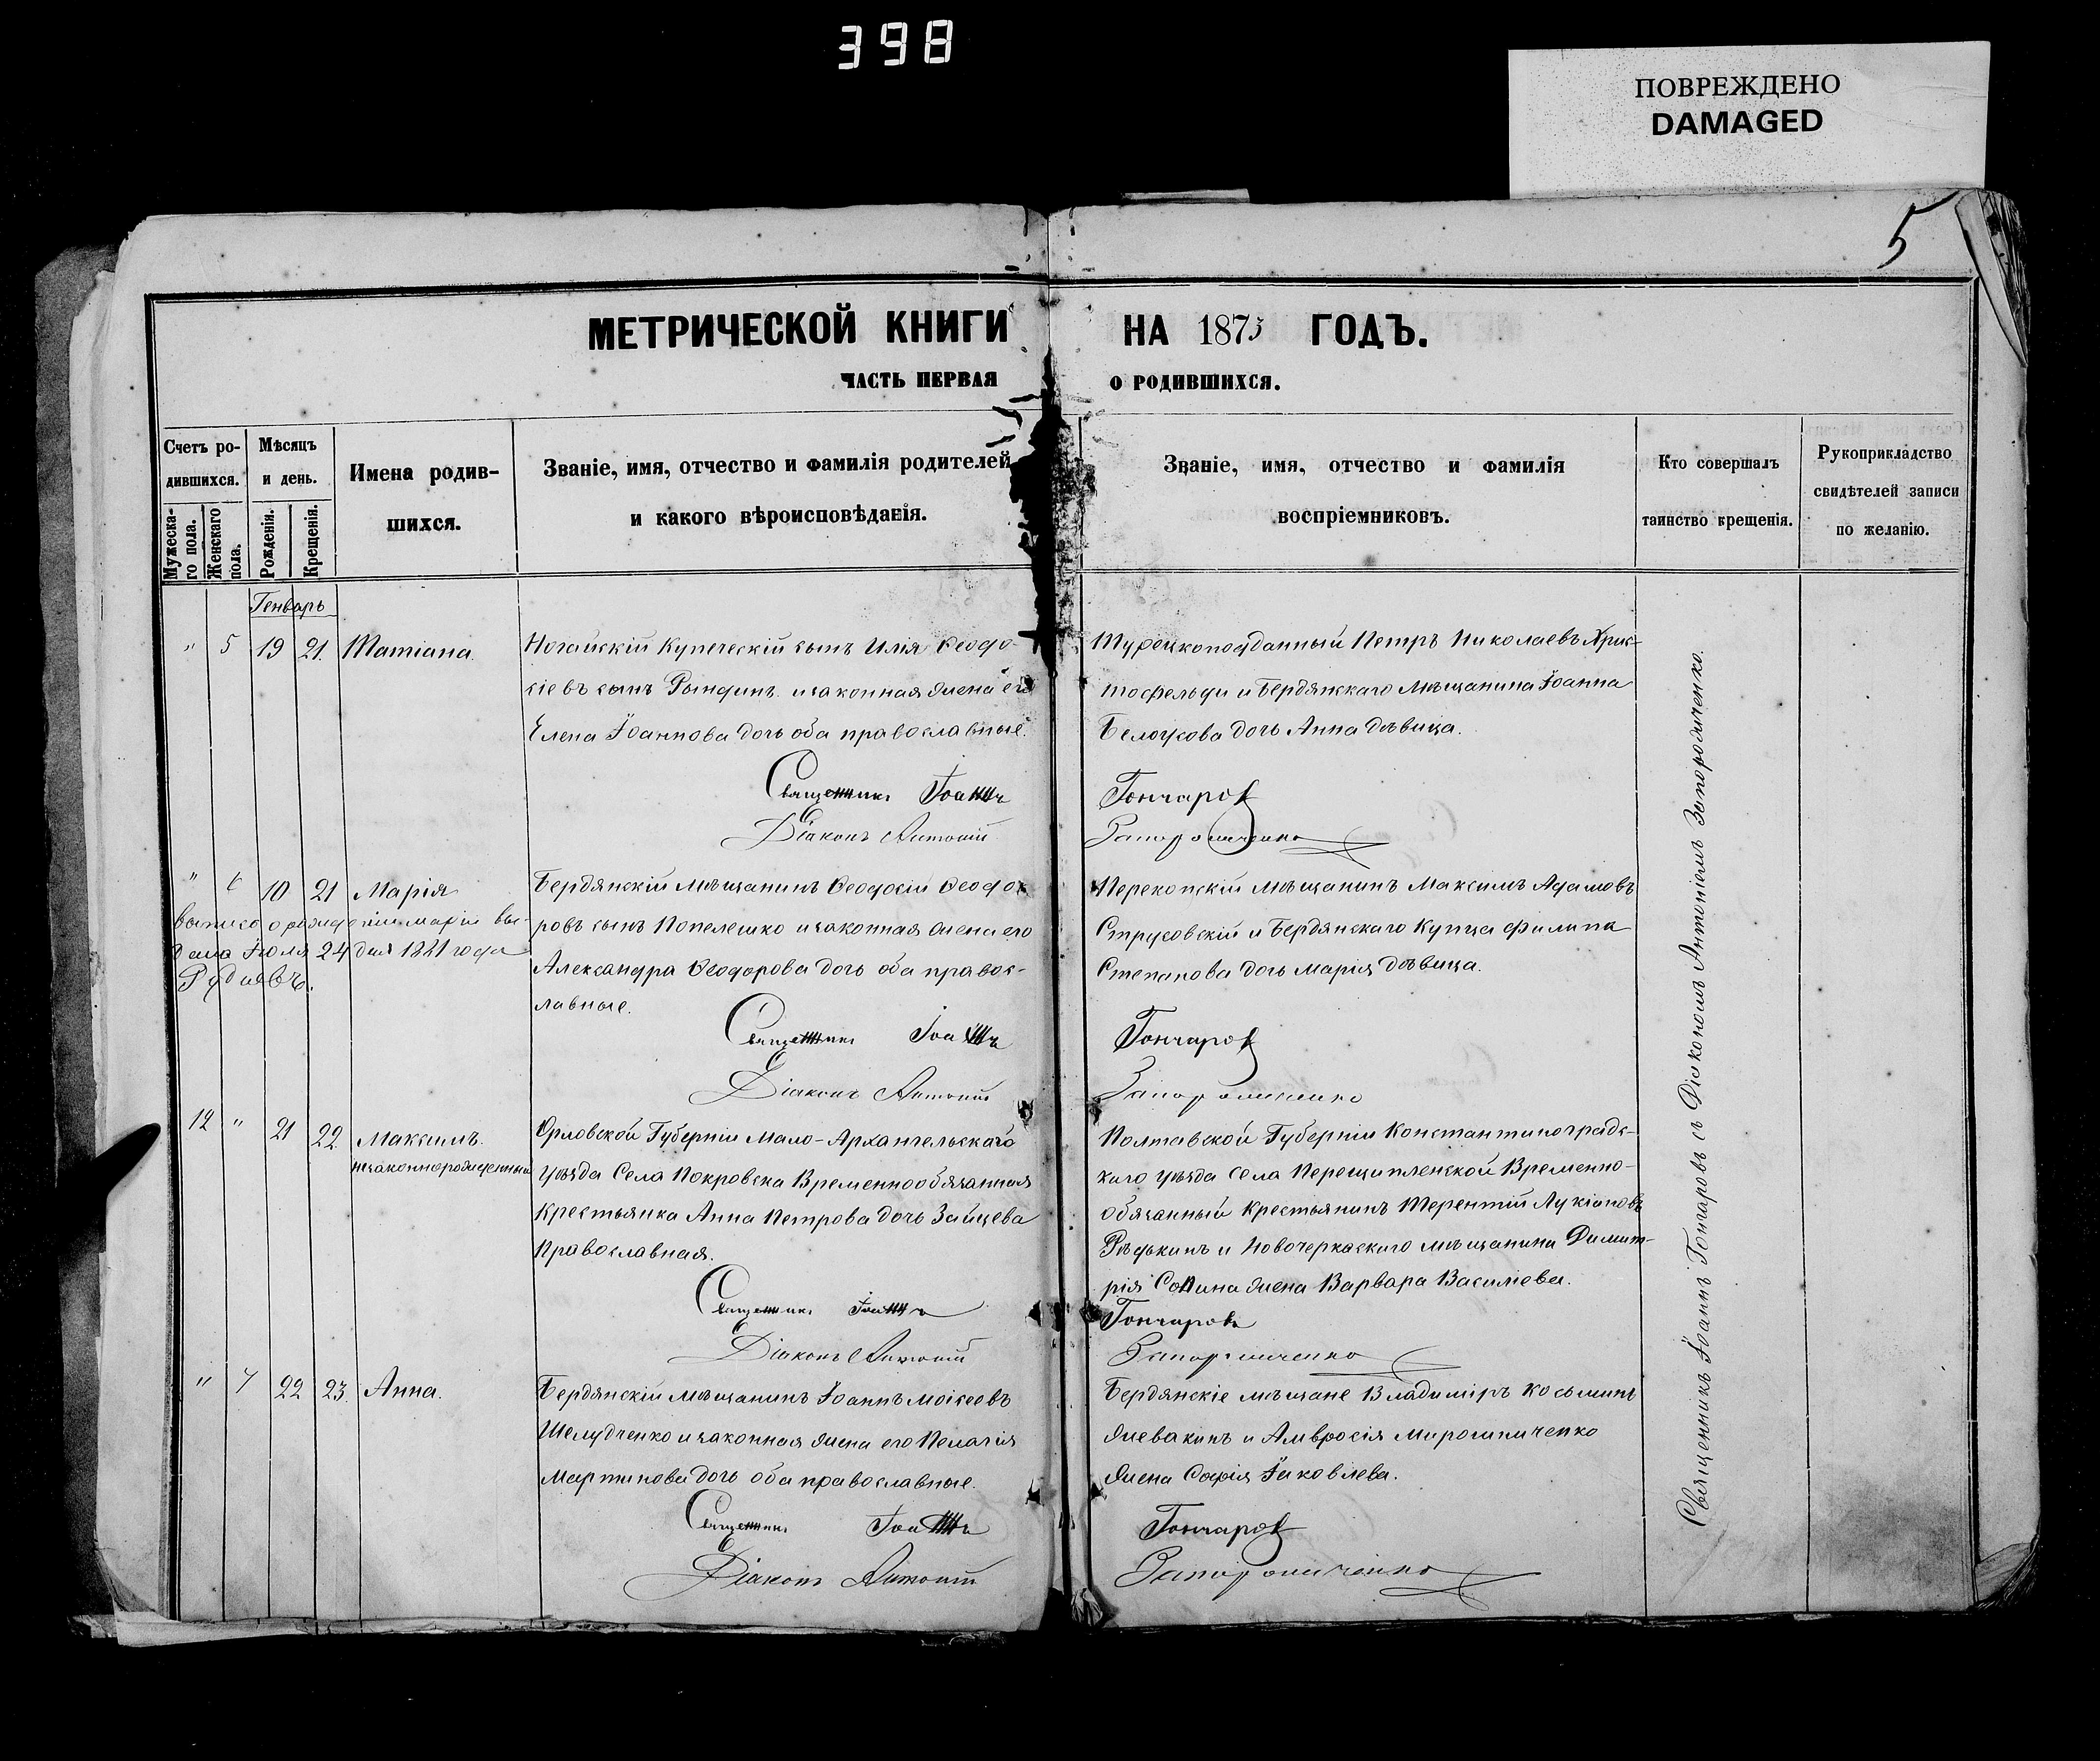 398
ПОВРЕЖДЕНО
DAMAGED
5
МЕТРИЧЕСКОЙ КНИГИ НА 1873 ГОДЪ.
ЧАСТЬ ПЕРВАЯ О РОДИВШИХСЯ.
Счетъ ро-
дившихся.
Мужеска-
го пола.
Женскаго
пола.
Мѣсяцъ
и день.
Рожденія.
Крещенія.
Имена родив-
шихся.
Званіе, имя, отчество и фамилія родителей
и какого вѣроисповѣданія.
Званіе, имя, отчество и фамилія
воспріемниковъ.
Кто совершалъ
таинство крещенія.
Рукоприкладство
свидѣтелей записи
по желанію.
Генварь
" 5 19 21. Татіана.
Ногайскій Купеческій сынъ Илія Ѳеодо-
сіевъ сынъ Рындинъ и законная жена его
Елена Іоаннова дочь оба православные.
Турецкоподданный Петръ Николаевъ Хрис-
тофельди и Бердянскаго Мѣщанина Іоанна
Белоусова дочь Анна дѣвица.
Священникъ Іоаннъ Гончаровъ
Діаконъ Антоній Запорожченко
" 6 10 21 Марія
Бердянскій мѣщанинъ Ѳеодосій Ѳеодо-
ровъ сынъ Попелешко и законная жена его
Александра Ѳеодорова дочь оба правос-
лавные.
выпись о рожденіи Маріи вы-
дана Іюля 24 дня 1881 года
Перекопскій мѣщанинъ Максимъ Адамовъ
Струсовскій и Бердянскаго Купца Филипа
Степанова дочь Марія дѣвица.
Священникъ Іоаннъ Гончаровъ
Діаконъ Антоній Запорожченко
12 " 21 22 Максимъ.
незаконнорожденный
Орловской Губерніи Мало-Архангельскаго
уѣзда Села Покровска Временнообязанная
крестьянка Анна Петрова дочь Зайцева
Православная.
Полтавской Губерніи Константиноградс-
каго уѣзда села Перещипленской Временно-
обязанный крестьянинъ Терентій Лукіановъ
Рѣдькинъ и Новочеркаскаго мѣщанина Димит-
рія Сонина жена Варвара Василіева.
Священникъ Іоаннъ Гончаровъ
Діаконъ Антоній Запорожченко
" 7 22 23. Анна.
Бердянскій мѣщанинъ Іоаннъ Моисеевъ
Шелудченко и законная жена его Пелагія
Мартинова дочь оба православные.
Бердянскіе мѣщане Владиміръ Косьминъ
Жевакинъ и Амвросія Мирошниченко
жена Софія Іаковлева.
Священникъ Іоаннъ Гончаровъ
Діаконъ Антоній Запорожченко
Священникъ Іоаннъ Гончаровъ съ Діакономъ Антоніемъ Запорожченко.